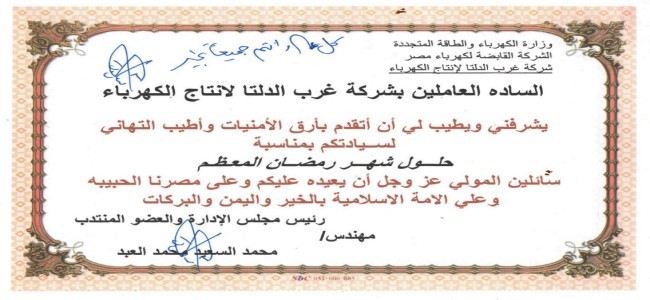 وزارة الكهرباء والطاقة المتجددة
الشركة القابضة لكهرباء مصر
شركة غرب الدلتا لإنتاج الكهرباء
كل عام وانتم جميعا بخير
الساده العاملين بشركة غرب الدلتا لانتاج الكهرباء
يشرفني ويطيب لي أن أتقدم بأرق الأمنيات وأطيب التهاني
لسيادتكم بمناسبة
حلول شهر رمضان المعظم
سائلين المولي عز وجل أن يعيده عليكم وعلى مصرنا الحبيبه
وعلي الامة الاسلامية بالخير واليمن والبركات
رئيس مجلس الإدارة والعضو المنتدب
مهندس/
محمد السعيد محمد العبد